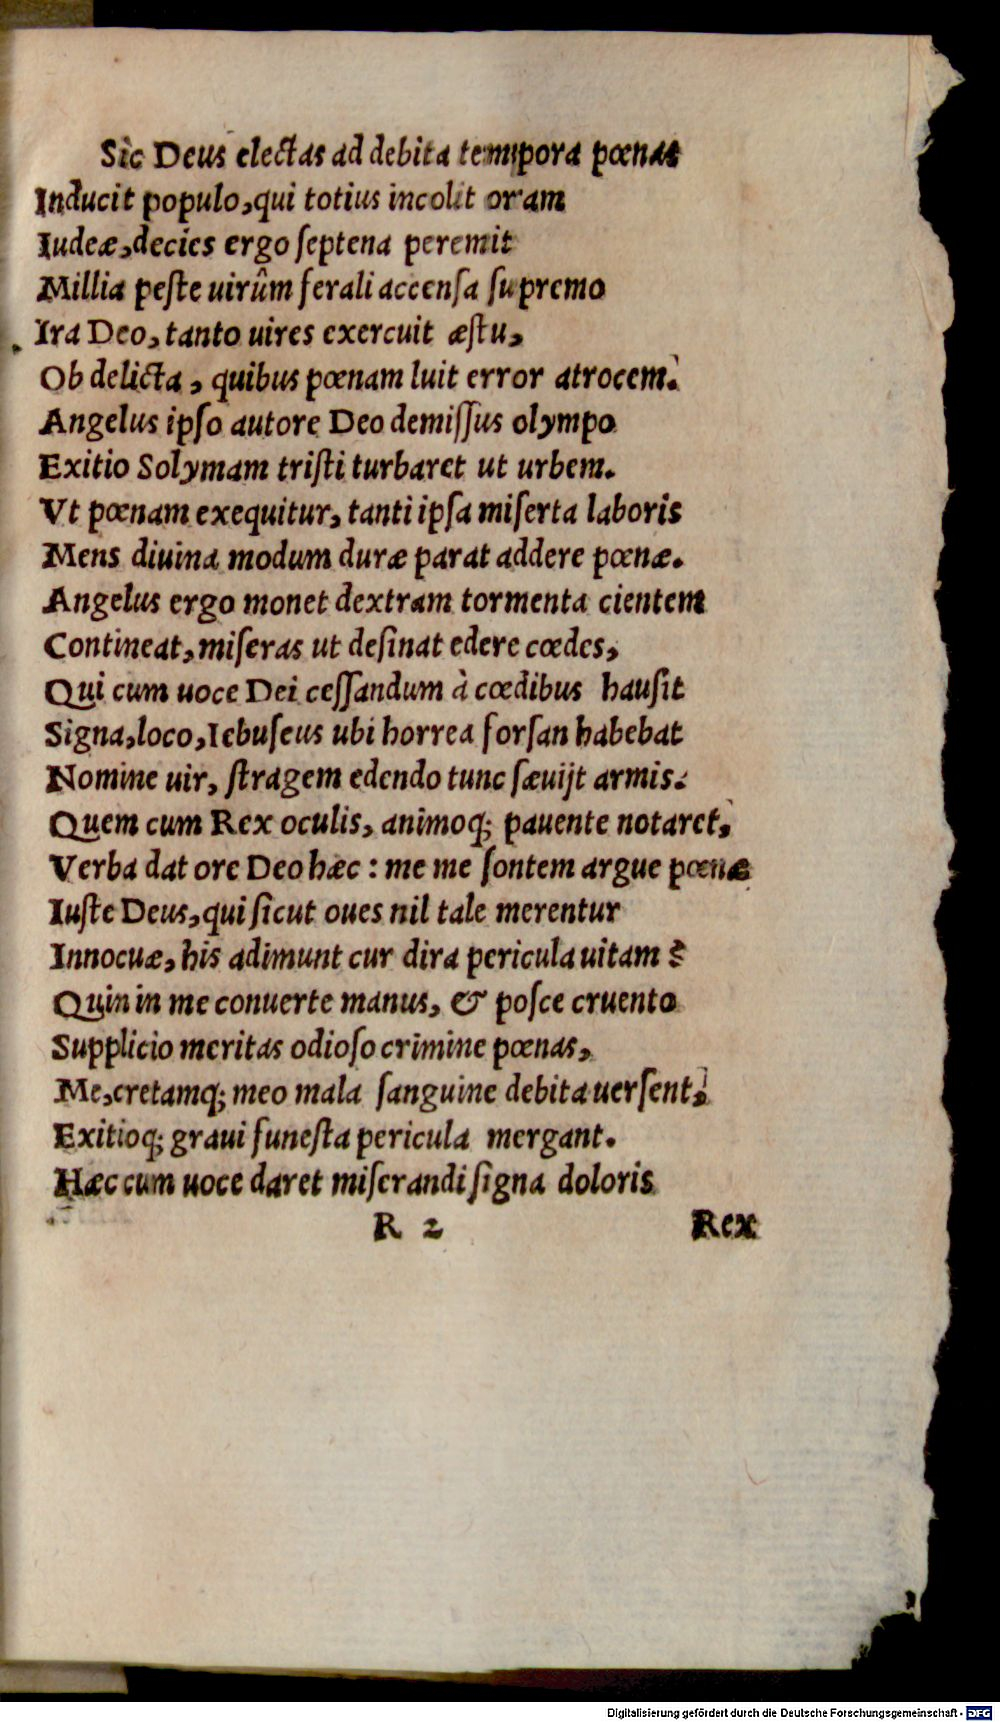 Sic Deus electas ad debita tempora pœnas
Inducit populo,qui totius incolit oram
Iudeæ,decies ergo ſeptena peremit
Millia peſte uirûm ferali accenſa ſupremo
Ira Deo, tanto uires exercuit æſtu,
Ob delicta, quibus pœnam luit error atrocem.
Angelus ipſo autore Deo demiſſus olympo
Exitio Solymam triſti turbaret ut urbem.
Vt pœnam exequitur, tanti ipſa miſerta laboris
Mens diuina modum duræ parat addere pœnæ.
Angelus ergo monet dextram tormenta cientem
Contineat, miſeras ut deſinat edere cœdes,
Qui cum uoce Dei ceſſandum à cœdibus hauſit
Signa,loco,Iebuſeus ubi horrea forſan habebat
Nomine uir, ſtragem edendo tunc ſæuijt armis.
Quem cum Rex oculis, animoq; pauente notaret,
Verba dat ore Deo hæc : me me ſontem argue pœnæ
Iuſte Deus,qui ſicut oues nil tale merentur
Innocuæ, his adimunt cur dira pericula uitam ?
Quin in me conuerte manus, & poſce cruento
Supplicio meritas odioſo crimine pœnas,
Me,cretamq; meo mala ſanguine debita uerſent,
Exitioq; graui funeſta pericula mergant.
Hæc cum uoce daret miſerandi ſigna doloris
R 2 Rex
Digitalisierung gefördert durch die Deutsche Forschungsgemeinschaft - DFG